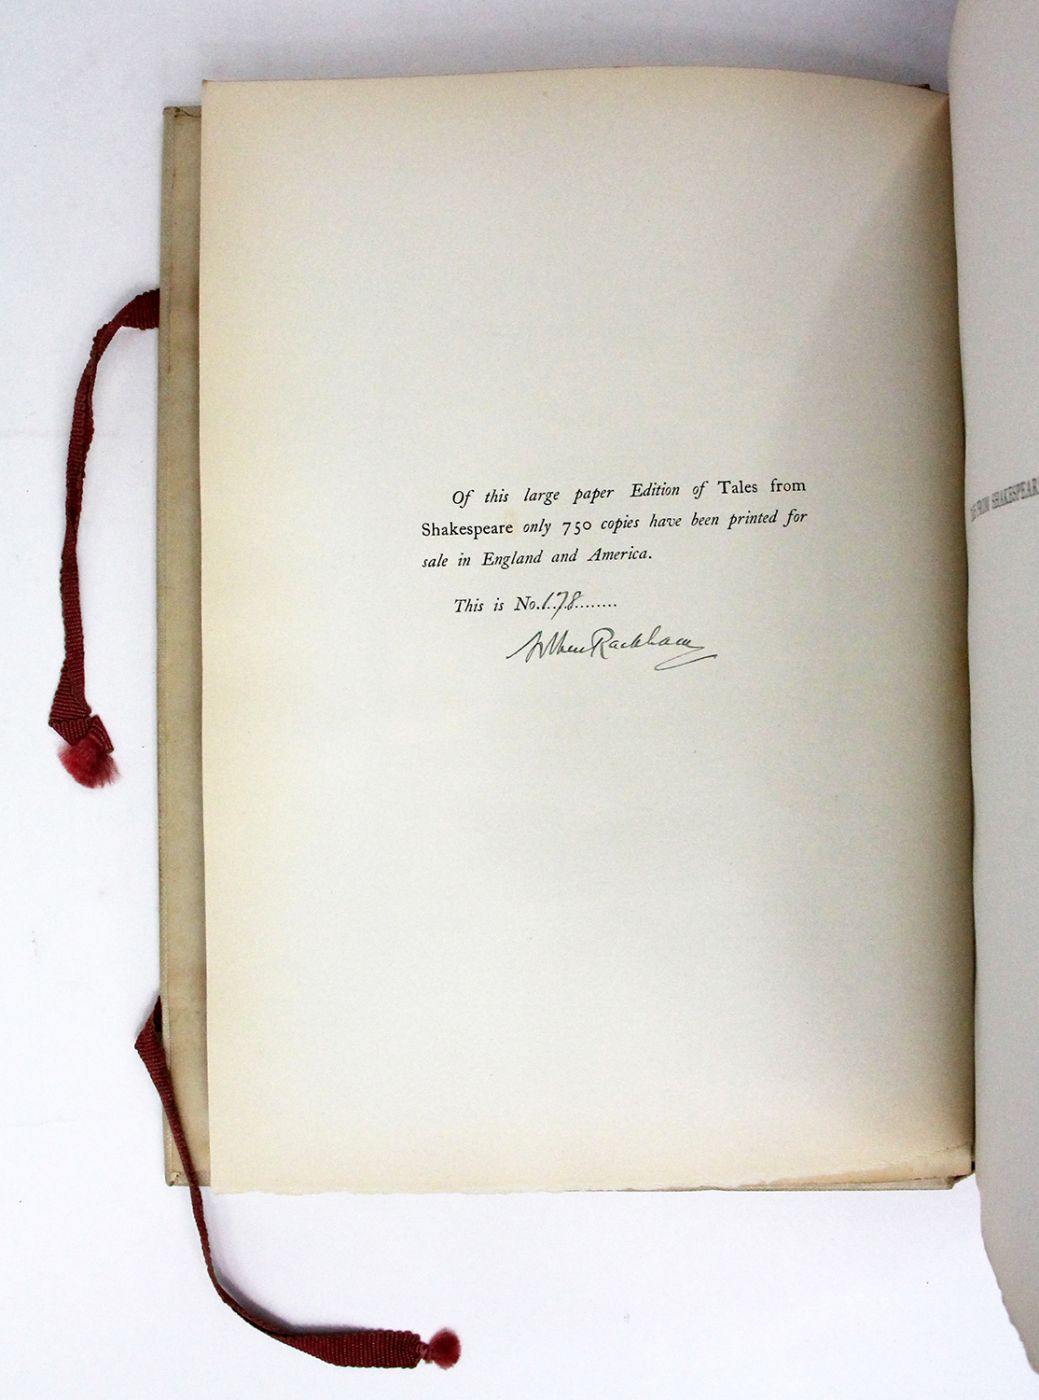 Of this large paper Edition of Tales from
Shakespeare only 750 copies have been printed for
sale in England and America.
This is No.178........
Arthur Rackham
FROM SHAKESPEAR